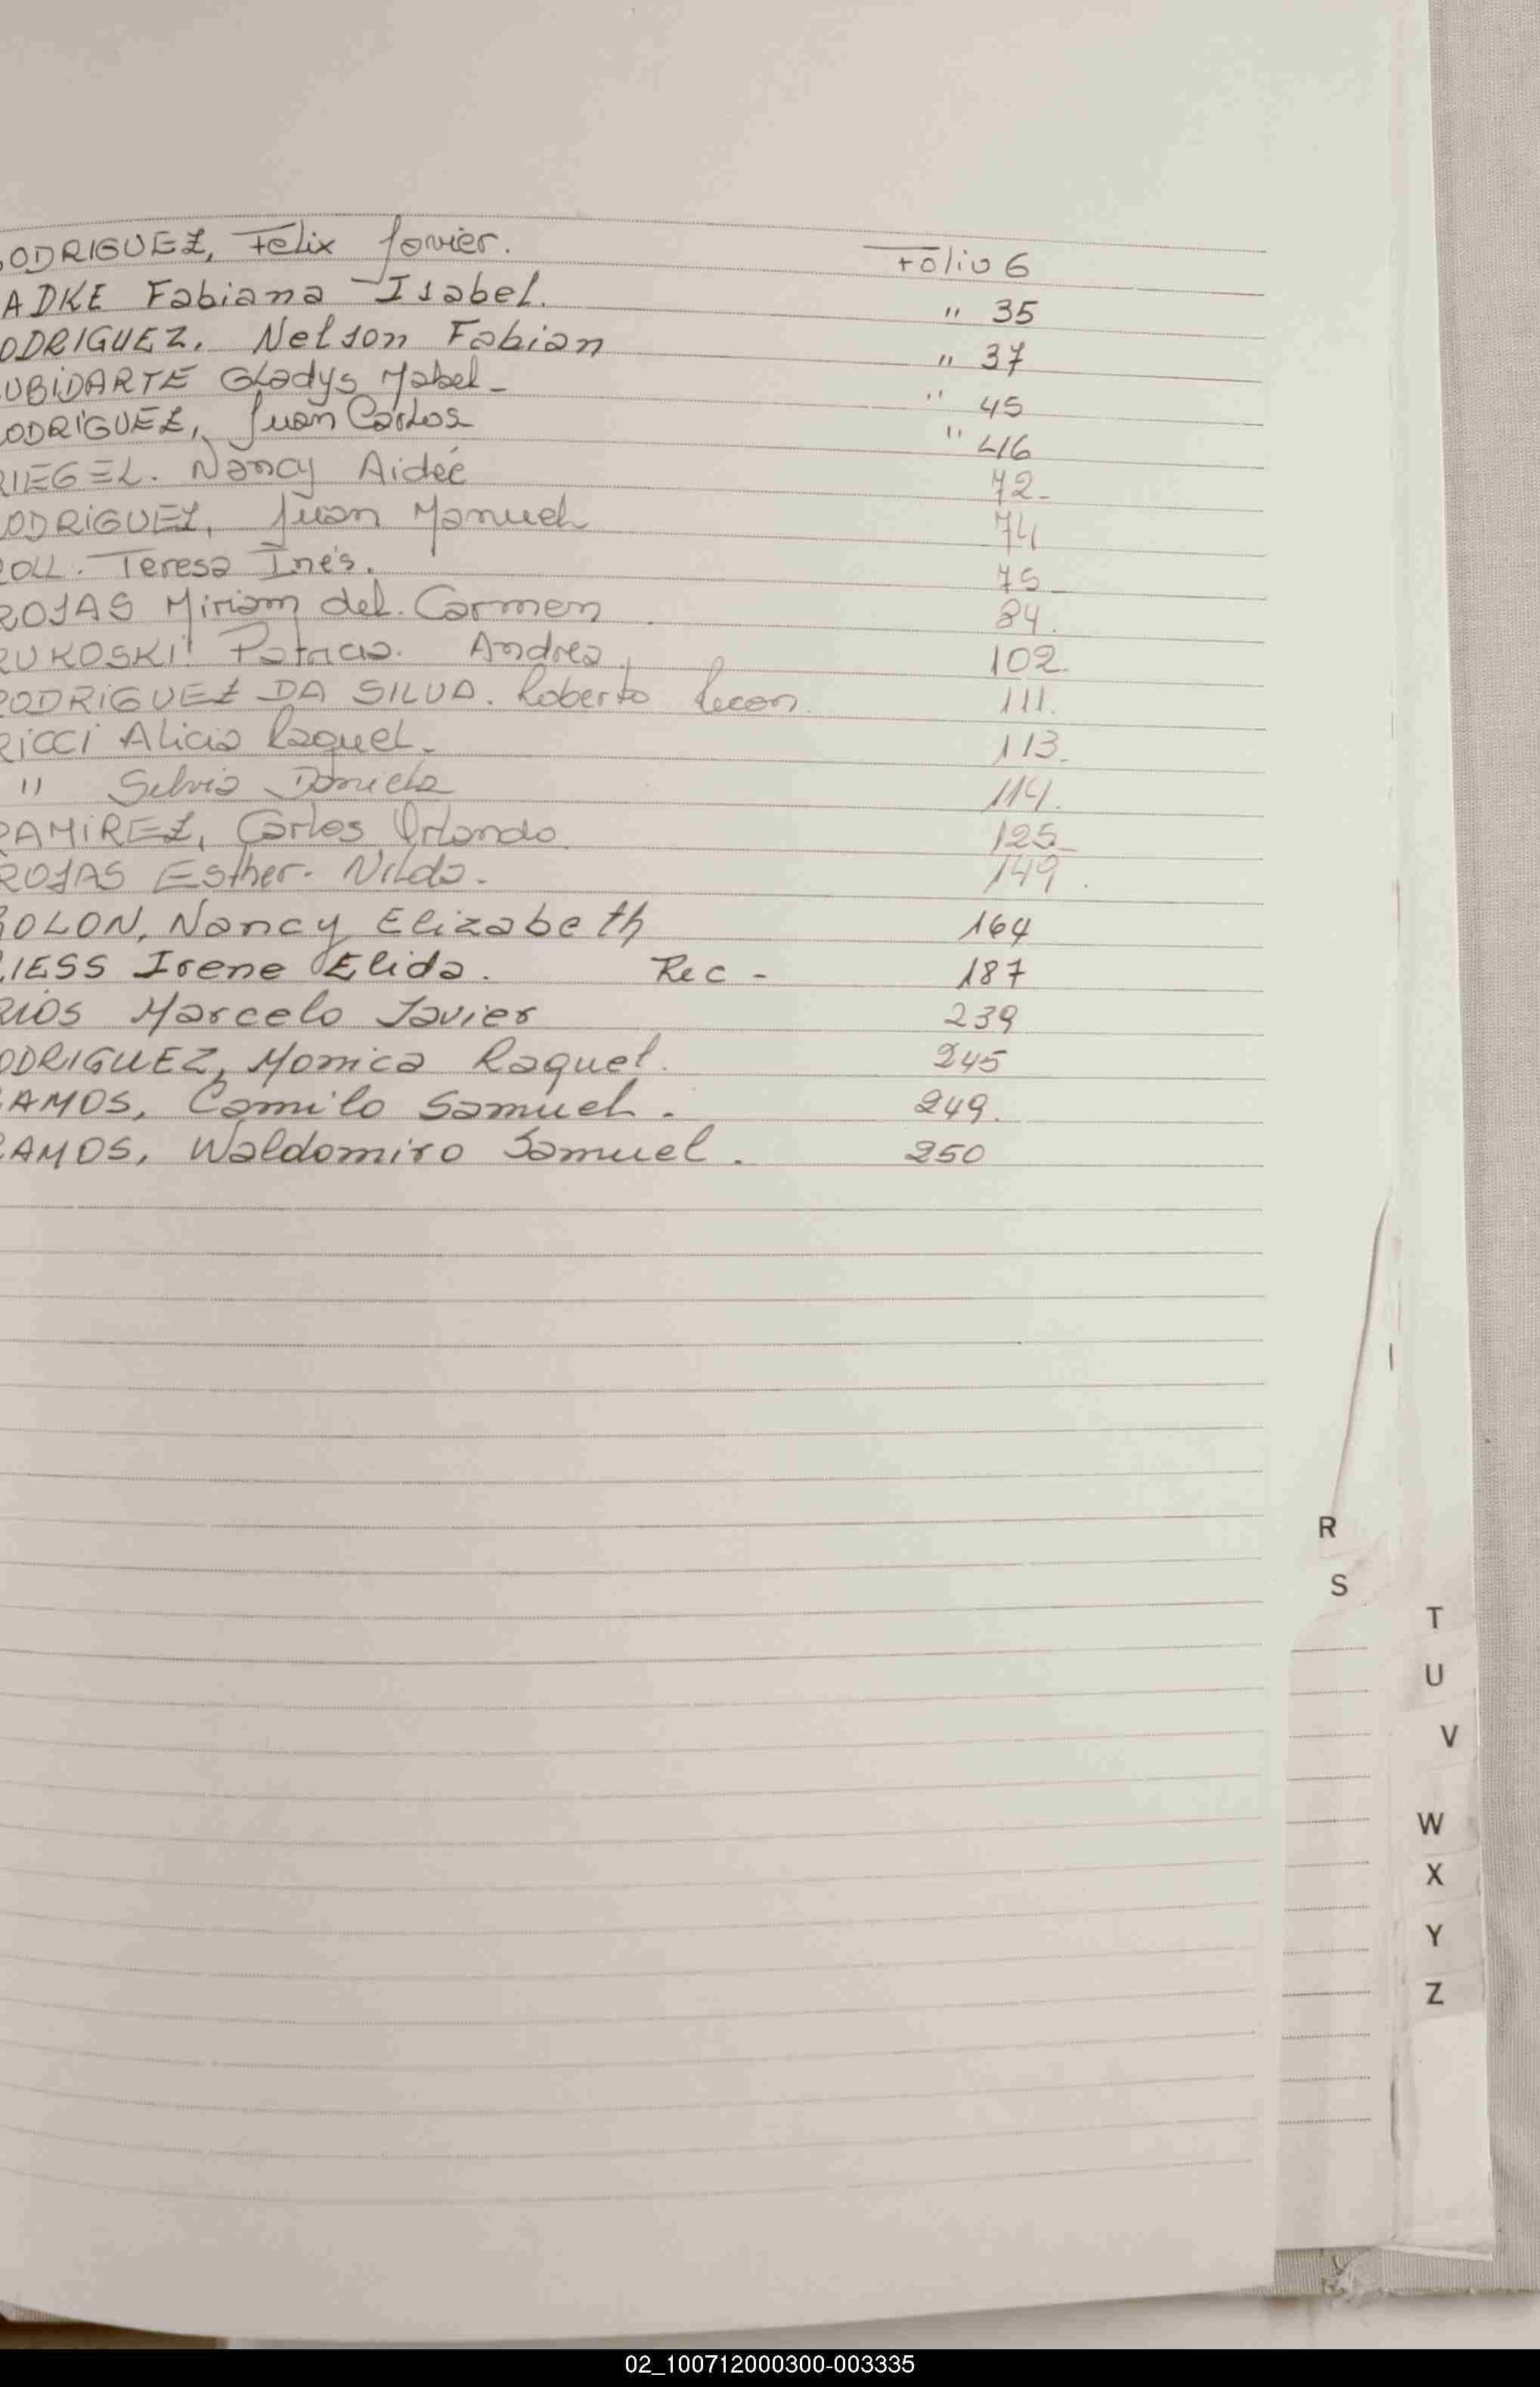 RODRIGUEZ, Felix Javier. Folio 6
ADKE Fabiana Isabel. " 35
ODRIGUEZ. Nelson Fabian " 37
UBIDARTE Gladys Mabel - " 45
ODRIGUEZ, Juan Carlos " 46
RIEGEL. Nancy Aideé 72-
RODRIGUEZ, Juan Manuel 74
ROLL. Teresa Inés. 75-
ROJAS Miriam del. Carmen. 84.
RUKOSKI Patricia. Andrea. 102.
RODRIGUEZ DA SILVA. Roberto 111.
RICCI Alicia Raquel. 113.
" Silvia Daniela 114.
RAMIREZ, Carlos Orlando. 125-
ROJAS Esther. Nilda. 149.
ROLON, Nancy Elizabeth 164
RIESS Irene Elida. Rec - 187
RIOS Marcelo Javier 239
ODRIGUEZ, Monica Raquel. 245
RAMOS, Camilo Samuel. 249.
RAMOS, Waldomiro Samuel. 250
R
S
T
U
V
W
X
Y
Z
02_100712000300-003335